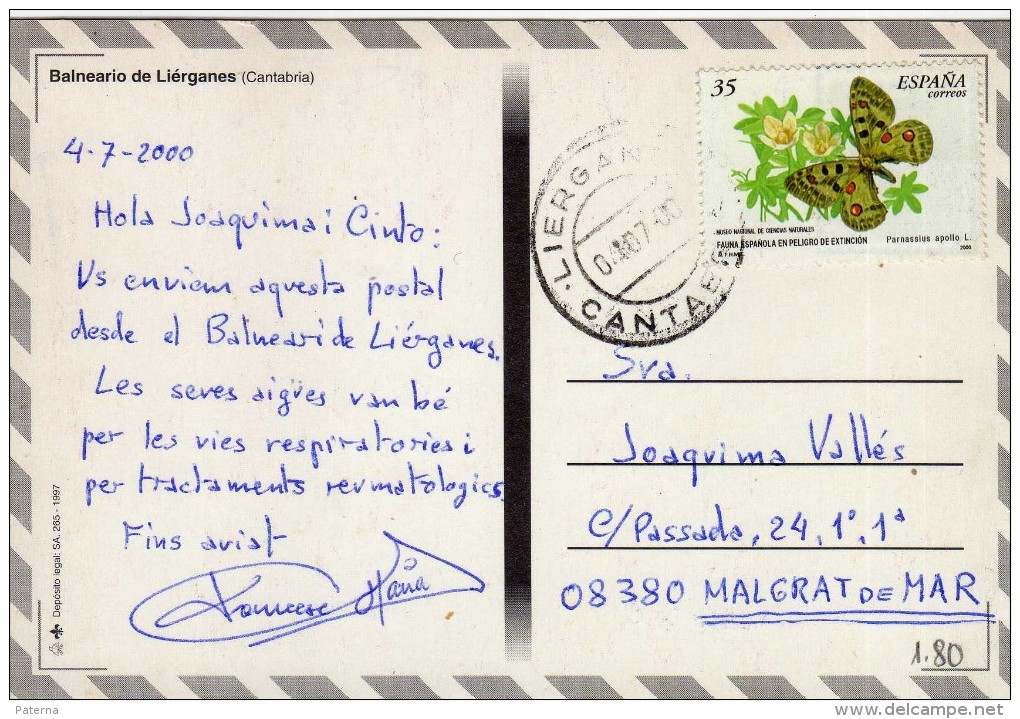 Balneario de Liérganes (Cantabria)
4-7-2000
Hola Joaquima i Cinto:
Us enviem aquesta postal
desde el Balneari de Liérganes.
Les seves aigües van bé
per les vies respiratories i
per tractaments reumatologics.
Fins aviat
Francesc
Depósito legal: SA. 265 - 1997
35
ESPAÑA
correos
MUSEO NACIONAL DE CIENCIAS NATURALES
FAUNA ESPAÑOLA EN PELIGRO DE EXTINCIÓN
Parnassius apollo L.
2000
LIERGAN
CANTAB
Sra.
Joaquima Vallés
C/Passada, 24, 1º, 1ª
08380 MALGRAT DE MAR
1.80
Paterna
delcampe.net